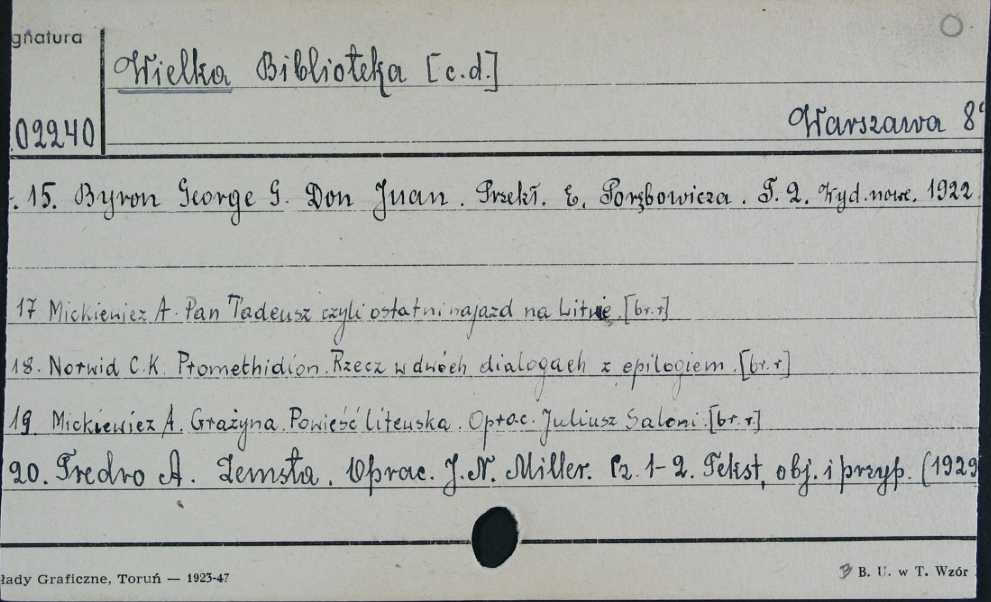 gnatura
Wielka Biblioteka [c.d.]
02240
Warszawa 8°
15. Byron George G. Don Juan. Przekł. E. Porębowicza. T. 2. Wyd. nowe. 1922
17 Mickiewicz A. Pan Tadeusz czyli ostatni najazd na Litwie. [br.r]
18. Norwid C.K. Promethidion. Rzecz w dwóch dialogach z epilogiem. [br.r]
19. Mickiewicz A. Grażyna. Powieść litewska. Oprac. Juliusz Saloni. [br.r]
20. Fredro A. Zemsta. Oprac. J.N. Miller. Cz. 1-2. Tekst, obj. i przyp. (1929
łady Graficzne, Toruń — 1923-47
B. U. w T. Wzór